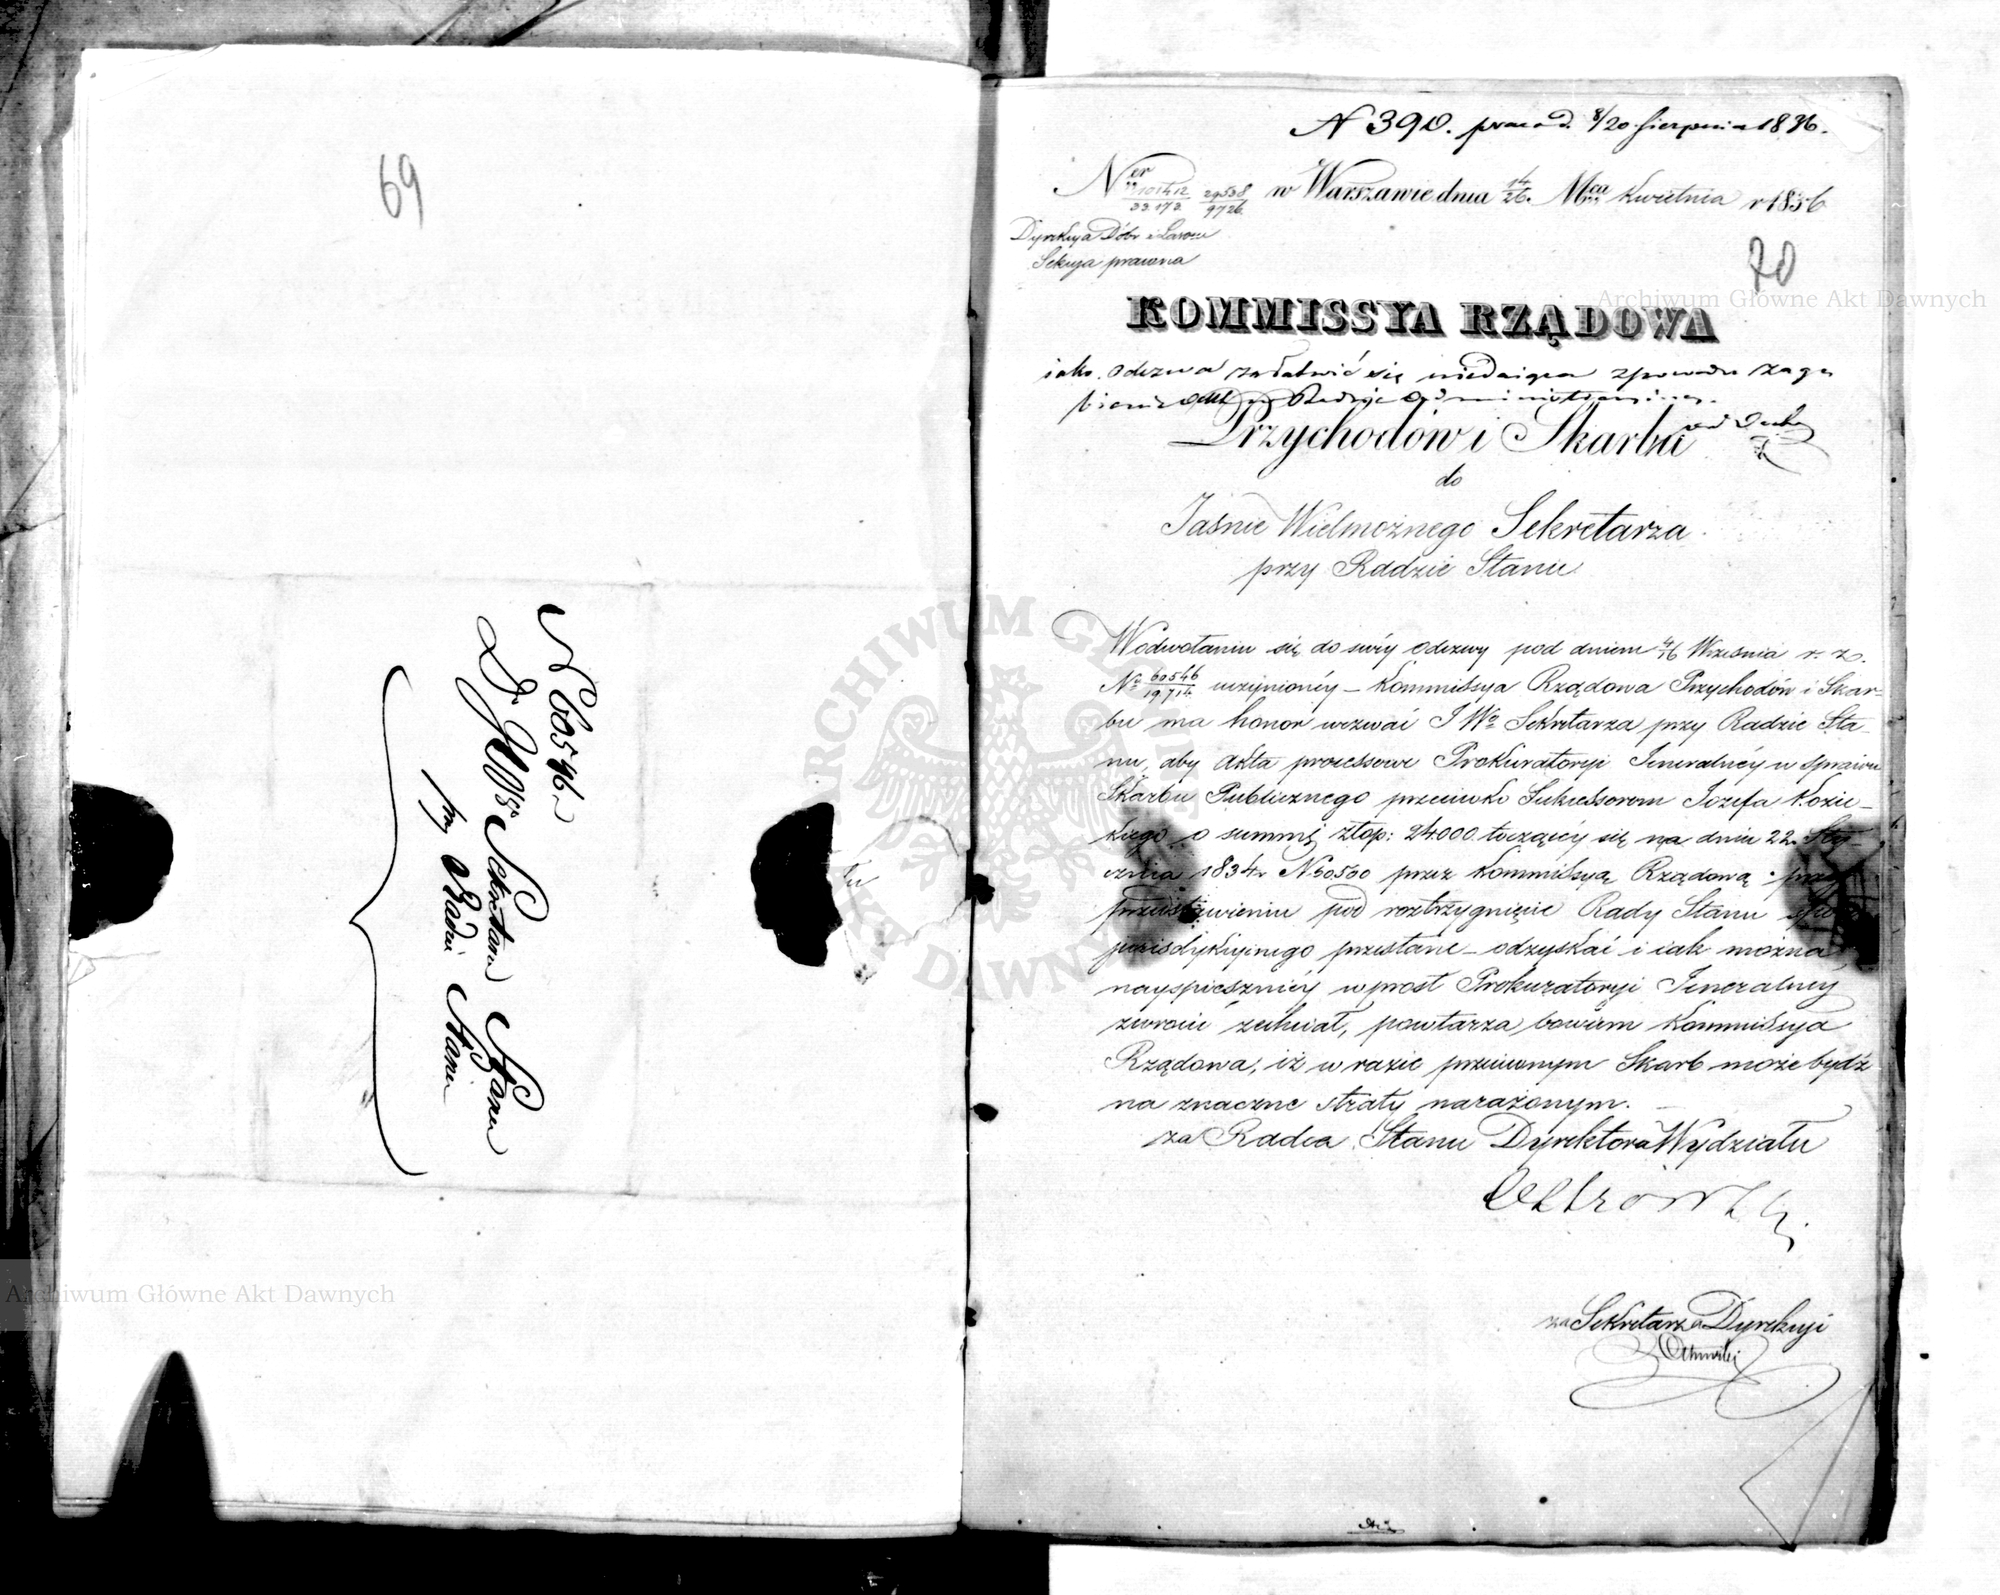 69
N 60546
D JWo Sekretarza Stanu
przy Radzie Stanu
N 390. prod. 8/20 Sierpnia 1836.
Ner 101412/33.173 29538/9726 w Warszawie dnia 14/26 Mca Kwietnia r 1836
Dyrekcya Dóbr i Lasow
Sekcya prawna
70
KOMMISSYA RZĄDOWA
iako odezwa załatwić się
Przychodów i Skarbu
do
Jaśnie Wielmożnego Sekretarza
przy Radzie Stanu
W odwołaniu się do swéy odezwy pod dniem 4/16 Września r. z.
No 60546/19714 uczynionéy – Kommissya Rządowa Przychodów i Skar-
bu ma honor wezwać JWo Sekretarza przy Radzie Sta-
nu, aby Akta processowe Prokuratoryi Jeneralnéy w sprawie
Skarbu Publicznego przeciwko Sukcessorom Jozefa Kozic-
kiego o summę złop: 24.000 toczącéy się na dniu 22. Sty-
cznia 1834 r N 50500 przez Kommissyą Rządową przy
przedstawieniu pod rozstrzygnięcie Rady Stanu
jurisdykcyinego przesłane – odzyskać i iak można
nayspieszniéy wprost Prokuratoryi Jeneralney
zwrócić zechciał, powtarza bowiem Kommissya
Rządowa, iż w razie przeciwnym Skarb może bydź
na znaczne straty narażonym.
za Radca Stanu Dyrektora Wydziału
za Sekretarza Dyrekcyi
Archiwum Główne Akt Dawnych
Archiwum Główne Akt Dawnych
ARCHIWUM GŁÓWNE AKT DAWNYCH